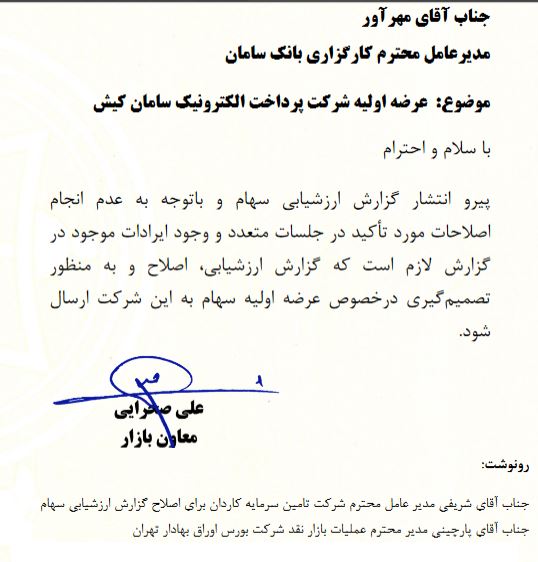 جناب آقای مهرآور
مدیرعامل محترم کارگزاری بانک سامان
موضوع: عرضه اولیه شرکت پرداخت الکترونیک سامان کیش
با سلام و احترام
پیرو انتشار گزارش ارزشیابی سهام و باتوجه به عدم انجام
اصلاحات مورد تأکید در جلسات متعدد و وجود ایرادات موجود در
گزارش لازم است که گزارش ارزشیابی، اصلاح و به منظور
تصمیم‌گیری درخصوص عرضه اولیه سهام به این شرکت ارسال
شود.
علی صحرایی
معاون بازار
رونوشت:
جناب آقای شریفی مدیر عامل محترم شرکت تامین سرمایه کاردان برای اصلاح گزارش ارزشیابی سهام
جناب آقای پارچینی مدیر محترم عملیات بازار نقد شرکت بورس اوراق بهادار تهران